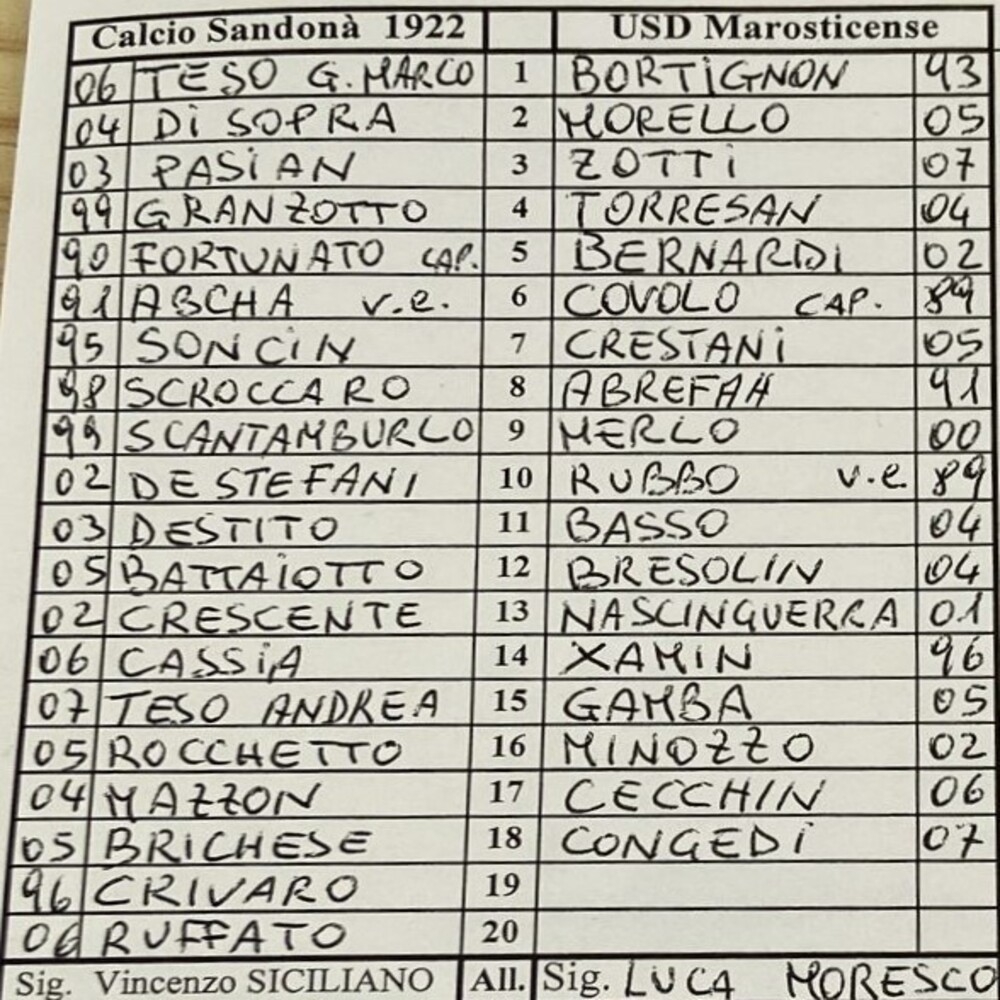 Calcio Sandonà 1922 USD Marosticense
06 TESO G. MARCO 1 BORTIGNON 93
04 DI SOPRA 2 MORELLO 05
03 PASIAN 3 ZOTTI 07
99 GRANZOTTO 4 TORRESAN 04
90 FORTUNATO CAP. 5 BERNARDI 02
91 ABCHA v.e. 6 COVOLO CAP. 89
95 SONCIN 7 CRESTANI 05
98 SCROCCARO 8 ABREFAH 91
99 SCANTAMBURLO 9 MERLO 00
02 DE STEFANI 10 RUBBO v.e. 89
03 DESTITO 11 BASSO 04
05 BATTAIOTTO 12 BRESOLIN 04
02 CRESCENTE 13 NASCINGUERRA 01
06 CASSIA 14 XAMIN 96
07 TESO ANDREA 15 GAMBA 05
05 ROCCHETTO 16 MINOZZO 02
04 MAZZON 17 CECCHIN 06
05 BRICHESE 18 CONGEDI 07
96 CRIVARO 19
06 RUFFATO 20
Sig. Vincenzo SICILIANO All. Sig. LUCA MORESCO